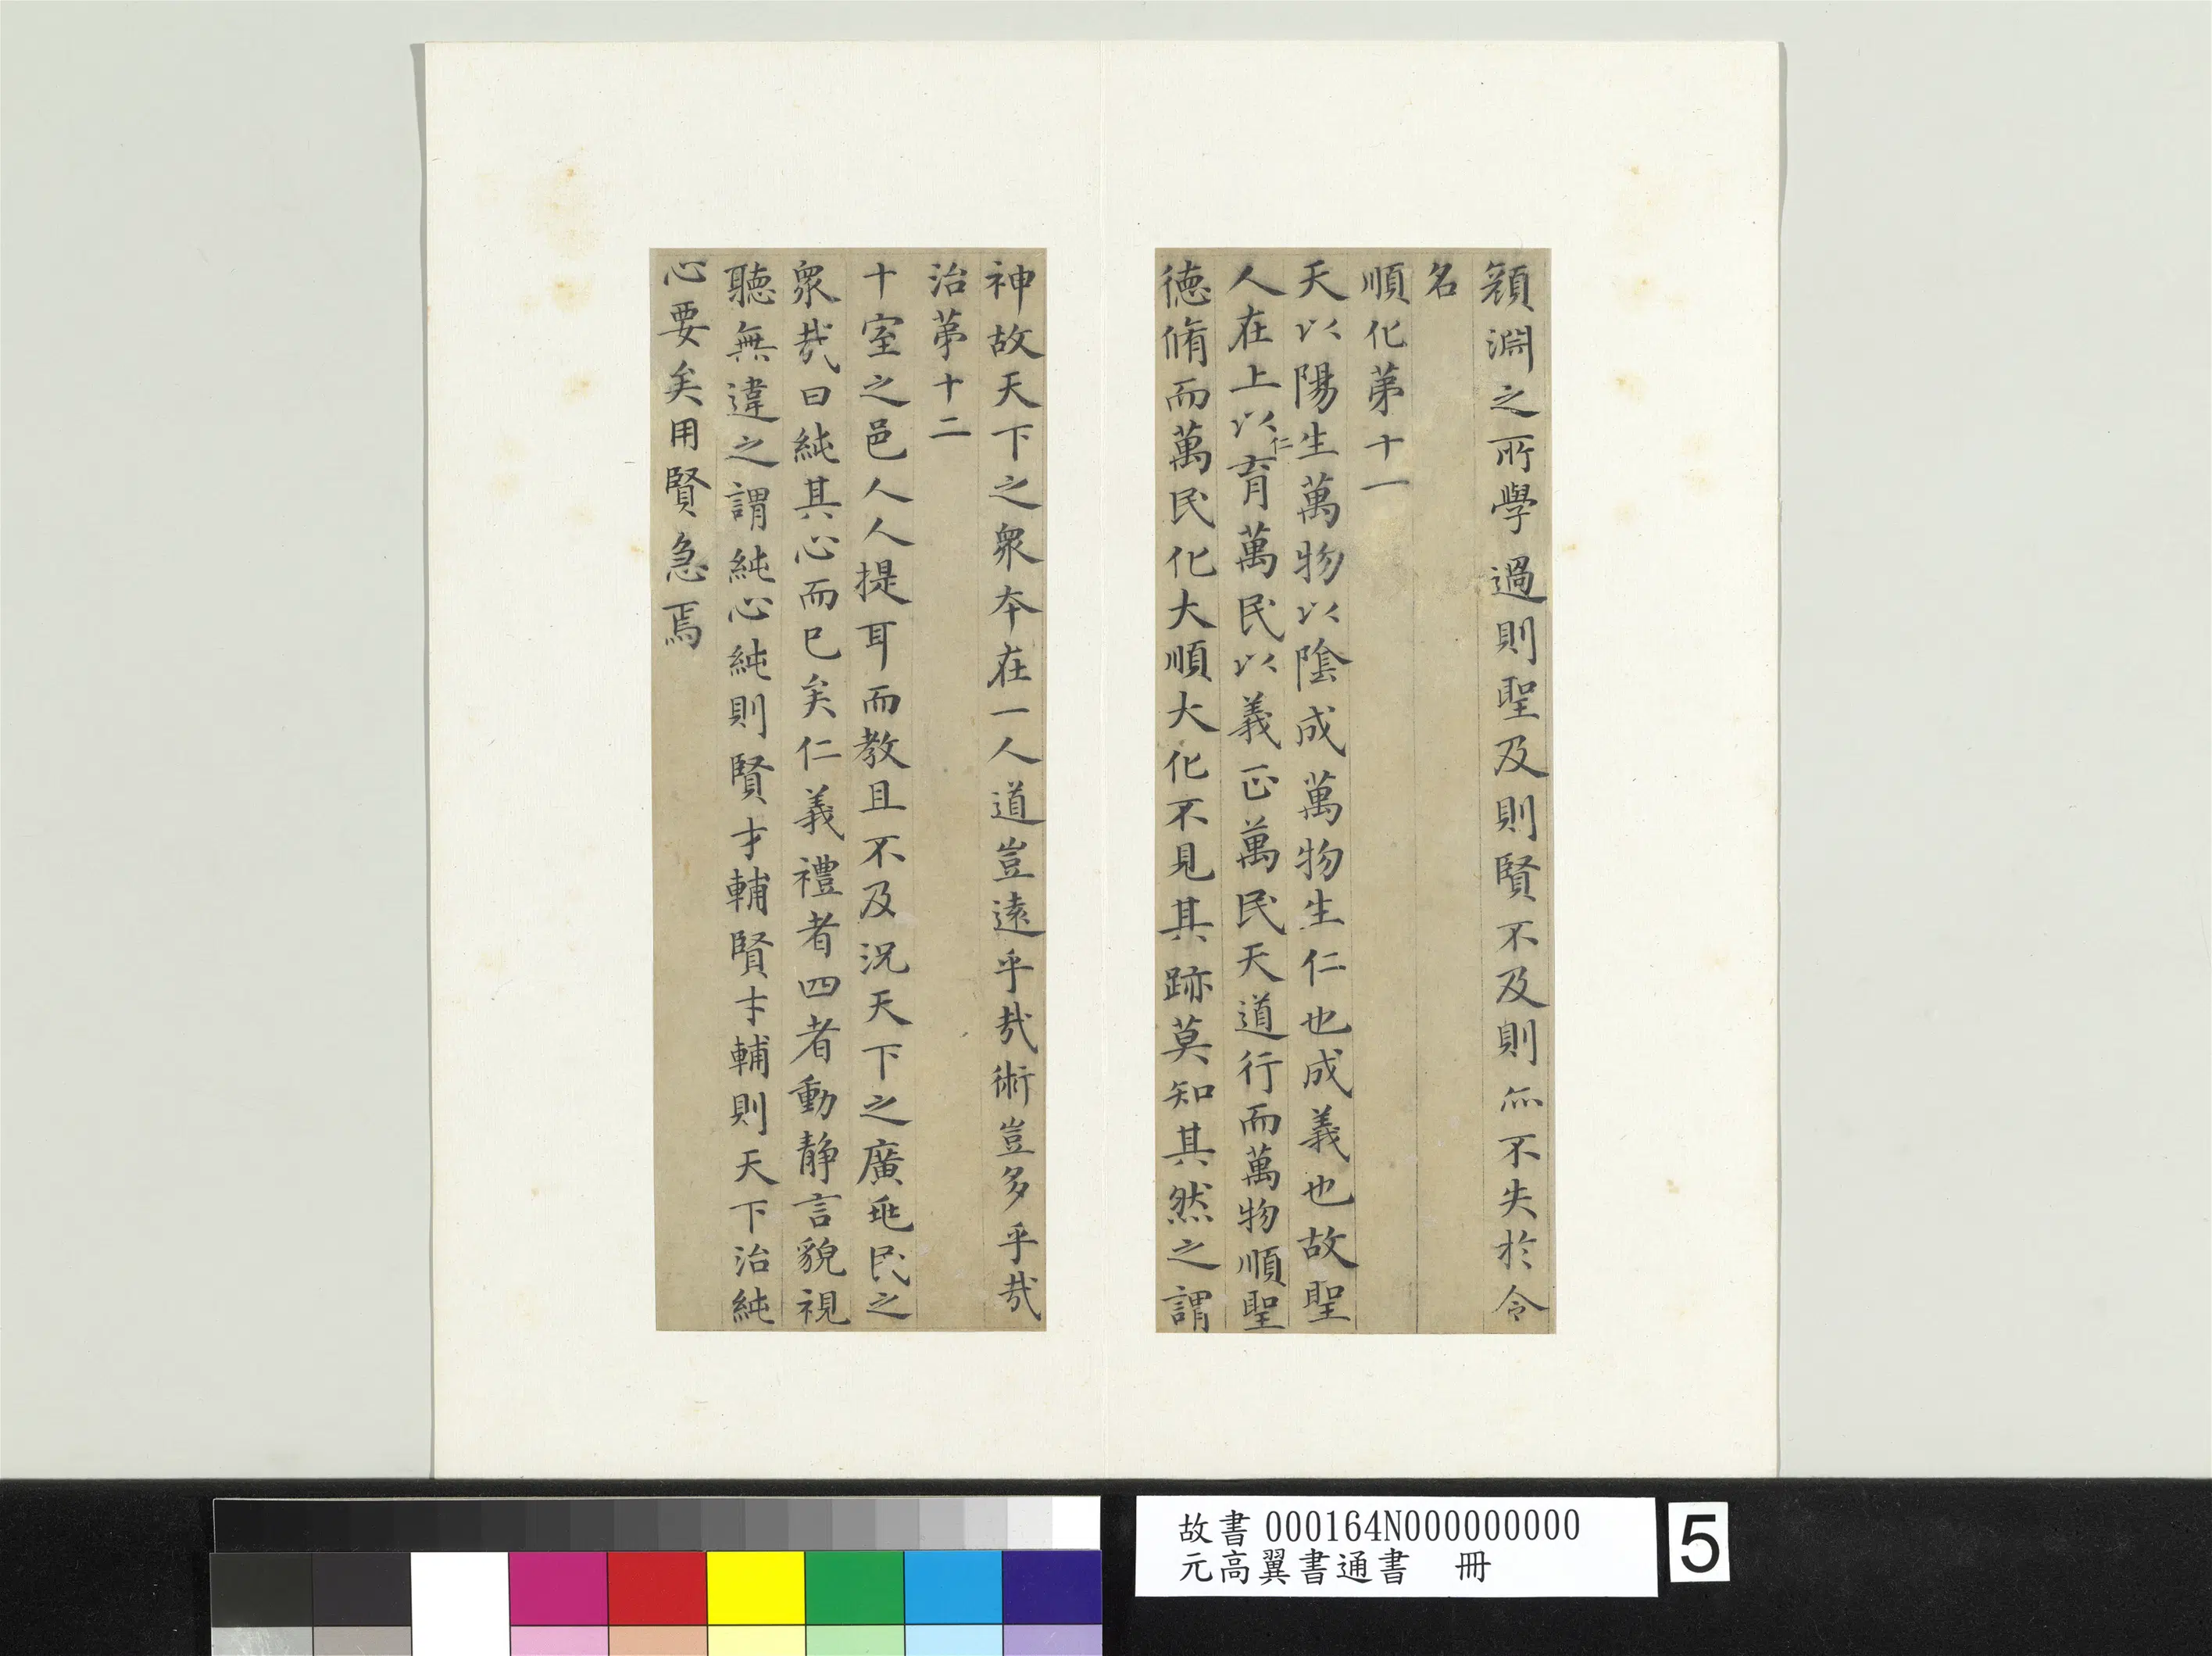 顏淵之所學過則聖及則賢不及則亦不失於令
名
順化苐十一
天以陽生萬物以陰成萬物生仁也成義也故聖
人在上以仁育萬民以義正萬民天道行而萬物順聖
德脩而萬民化大順大化不見其跡莫知其然之謂
神故天下之衆夲在一人道豈遠乎㢤術豈多乎㢤
治苐十二
十室之邑人人提耳而教且不及況天下之廣兆民之
衆㢤曰純其心而已矣仁義禮者四者動静言貌視
聽無違之謂純心純則賢才輔賢才輔則天下治純
心要矣用賢急焉
故書000164N000000000
元高翼書通書 冊
5